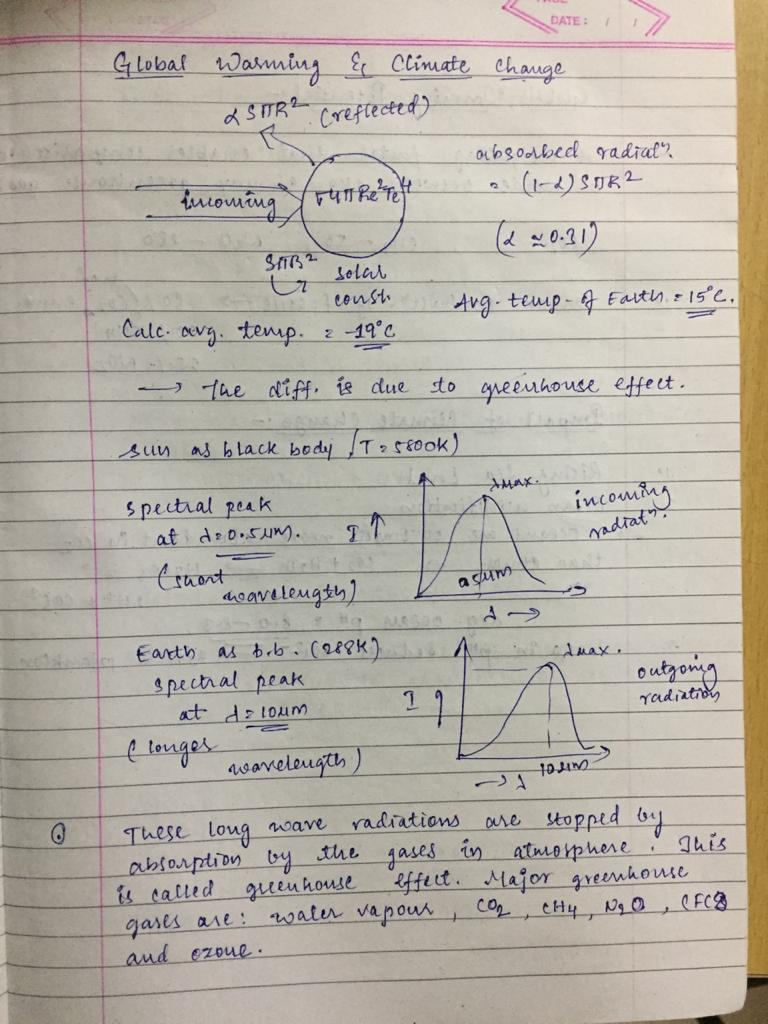 DATE: / /
Global Warming & Climate Change
αSπR² (reflected)
incoming
σ4πRe²Te⁴
absorbed radiatⁿ.
= (1-α)SπR²
(α ≈ 0.31)
SπR²
solar
const.
Avg. temp. of Earth = 15°C.
Calc. avg. temp. = -19°C
→ The diff. is due to greenhouse effect.
Sun as black body (T = 5800K)
spectral peak
at λ = 0.5μm.
(short
wavelength)
I ↑
λmax.
0.5μm
λ →
incoming
radiatⁿ.
Earth as b.b. (288K)
spectral peak
at λ = 10μm
(longer
wavelength)
I ↑
λmax.
10μm
→ λ
outgoing
radiation
These long wave radiations are stopped by
absorption by the gases in atmosphere. This
is called greenhouse effect. Major greenhouse
gases are: water vapour, CO₂, CH₄, N₂O, CFCs
and ozone.